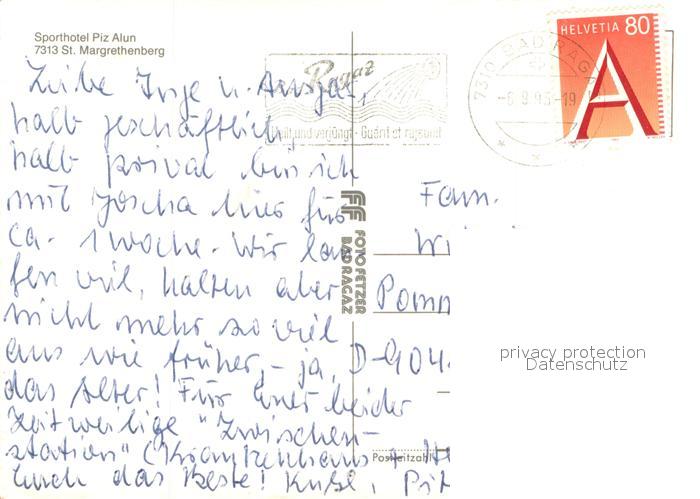 Sporthotel Piz Alun
7313 St. Margrethenberg
HELVETIA 80
A
7310 BAD RAGAZ
-6.9.95-19
Ragaz
heilt und verjüngt - Guérit et rajeunit
Liebe Inge u.
halb geschäftlich,
halb privat bin ich
mit Joscha hier für
ca. 1 Woche. Wir lau
fen viel, halten aber
nicht mehr so viel
aus wie früher, - ja,
das Alter! Für Euer beider
zeitweilige "Zwischen-
station" (Krankenhaus
Euch das Beste! Küßl,
FOTO FETZER
BAD RAGAZ
Fam.
Wi
Pomm
D-904
Postleitzahl
privacy protection
Datenschutz